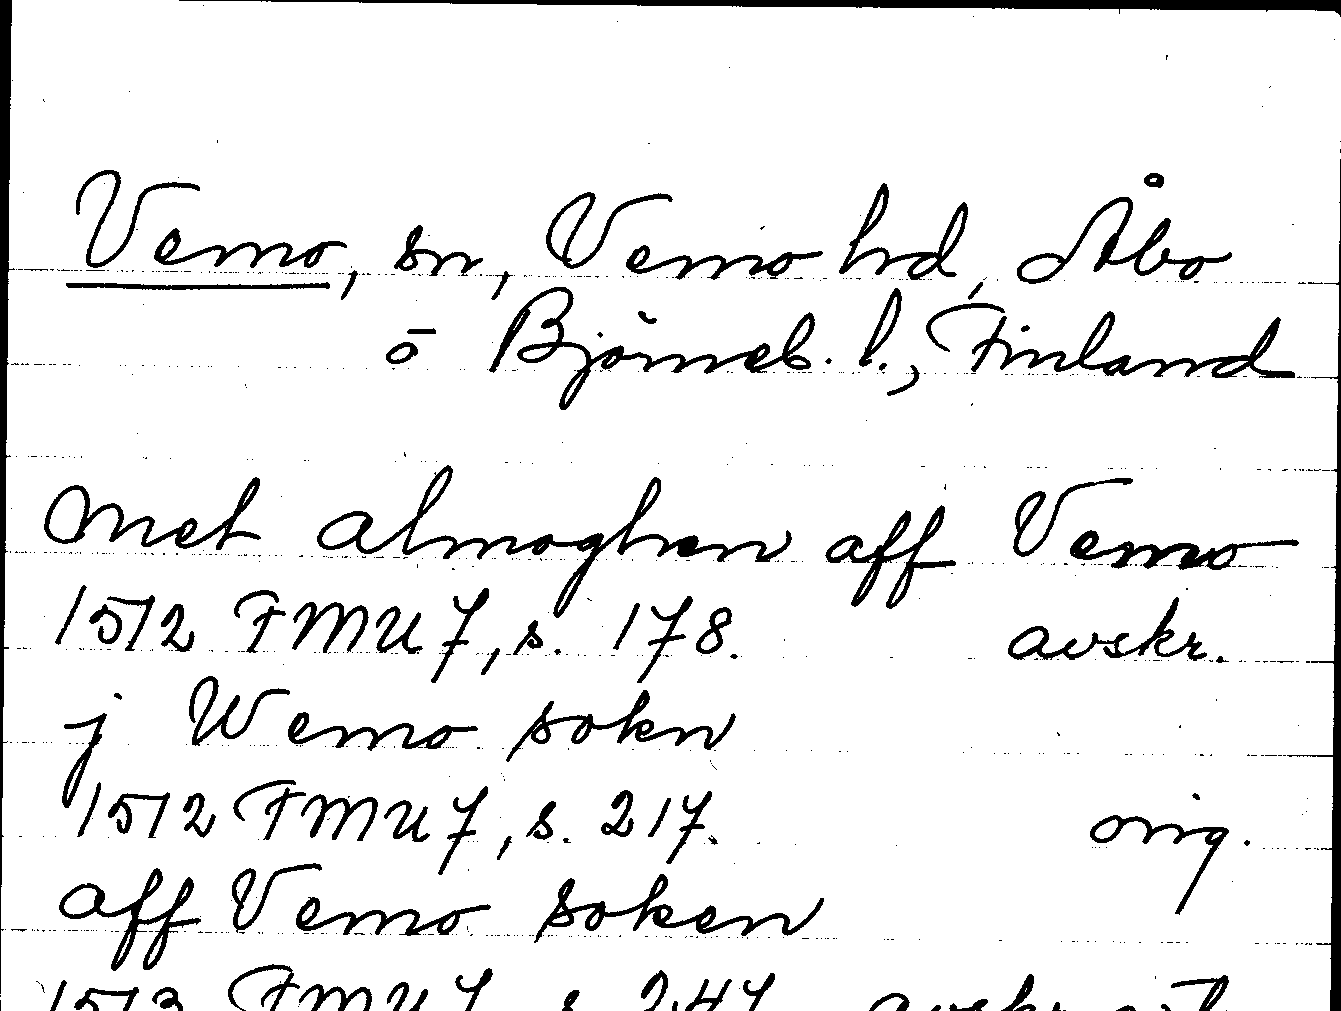 Vemo, sn, Vemo hd, Åbo
o Björneb. l., Finland
met almoghen aff Vemo
1512 FMU 7, s. 178. avskr.
j Wemo sokn
1512 FMU 7, s. 217. orig.
aff Vemo soken
1513 FMU 7, s. 247 avskr.